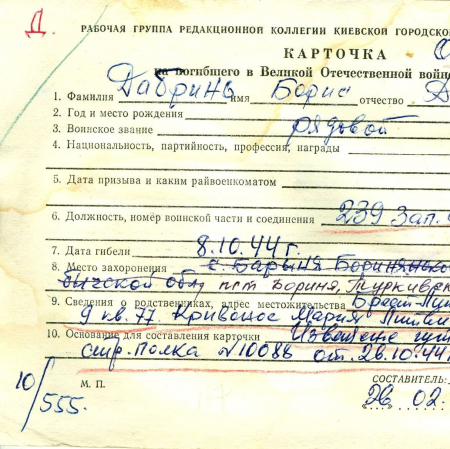 Д.
РАБОЧАЯ ГРУППА РЕДАКЦИОННОЙ КОЛЛЕГИИ КИЕВСКОЙ ГОРОДСКО
КАРТОЧКА
на погибшего в Великой Отечественной войн
1. Фамилия Дабринь имя Борис отчество
2. Год и место рождения
3. Воинское звание рядовой
4. Национальность, партийность, профессия, награды
5. Дата призыва и каким райвоенкоматом
6. Должность, номер воинской части и соединения 239 зап.
7. Дата гибели 8.10.44 г.
8. Место захоронения с. Барыня
обл, пгт Бориня,
9. Сведения о родственниках, адрес местожительства
9 кв. 77. Кривонос Мария
10. Основание для составления карточки Извещение
стр. полка N10086 от. 26.10.44
М. П.
СОСТАВИТЕЛЬ:
10/555.
26 02.